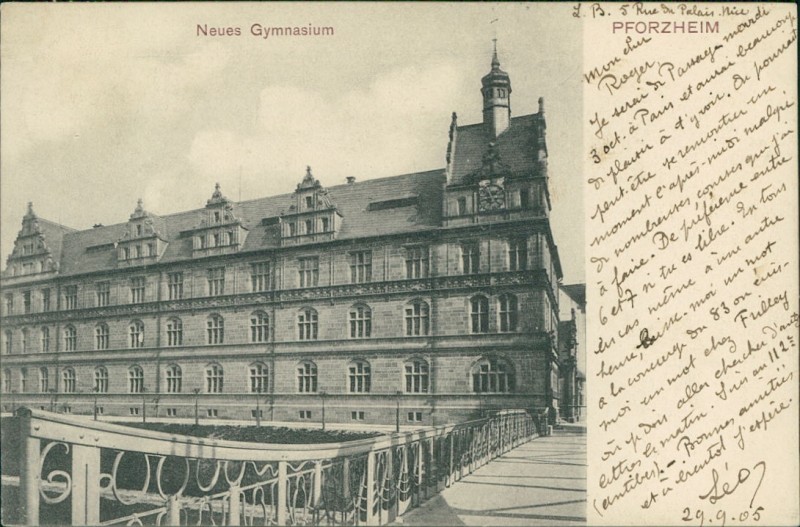 Neues Gymnasium
L. B. 5 Rue du Palais. Nice
PFORZHEIM
Mon cher
Roger
Je serai de Passage mardi
3 oct. à Paris et aurai beaucoup
de plaisir à t'y voir. On pourrait
peut-être se rencontrer un
moment l'après-midi malgré
de nombreuses courses que j'ai
à faire. De préférence entre
6 et 7 si tu es libre. En tous
les cas même à une autre
heure, laisse-moi un mot
à la concierge du 83 ou écris-
moi un mot chez Frilley
où je dois aller chercher d'autres
lettres le matin. Suis au 112e
(antibes). Bonnes amitiés
et à bientôt j'espère.
Léo
29.9.05